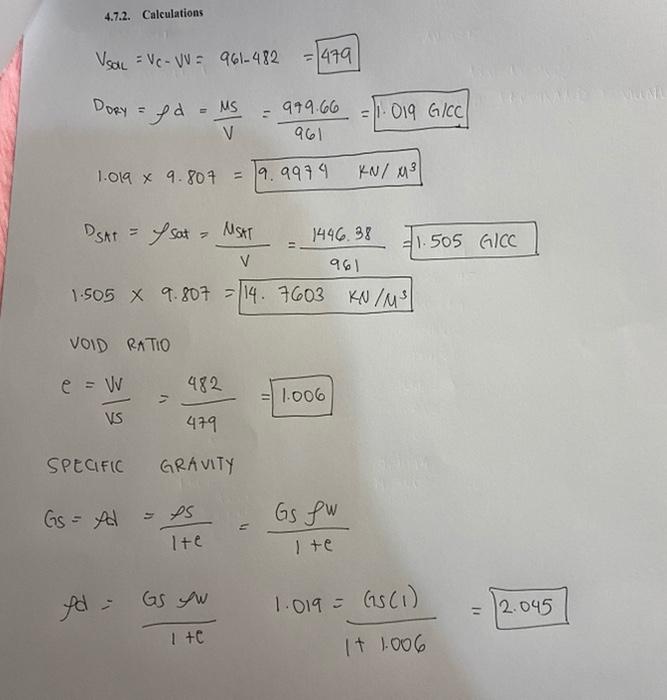 4.7.2. Calculations
VSOIL = VC - VV = 961-482 = 479
DDRY = ρd = MS/V = 979.66/961 = 1.019 G/CC
1.019 x 9.807 = 9.9974 KN/M³
DSAT = ρsat = MSAT/V = 1446.38/961 = 1.505 G/CC
1.505 x 9.807 = 14.7603 KN/M³
VOID RATIO
e = VV/VS = 482/479 = 1.006
SPECIFIC GRAVITY
Gs = ρd = ρs/1+e = Gs ρw/1+e
ρd = Gs ρw/1+e 1.019 = Gs(1)/1+1.006 = 2.045